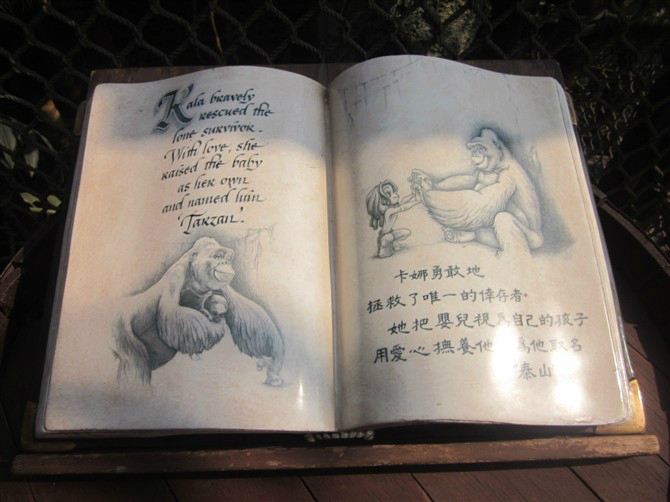 Kala bravely
rescued the
lone survivor.
With love, she
raised the baby
as her own
and named him
'Tarzan'.
卡娜勇敢地
拯救了唯一的倖存者。
她把嬰兒視為自己的孩子
用愛心撫養他 為他取名
泰山